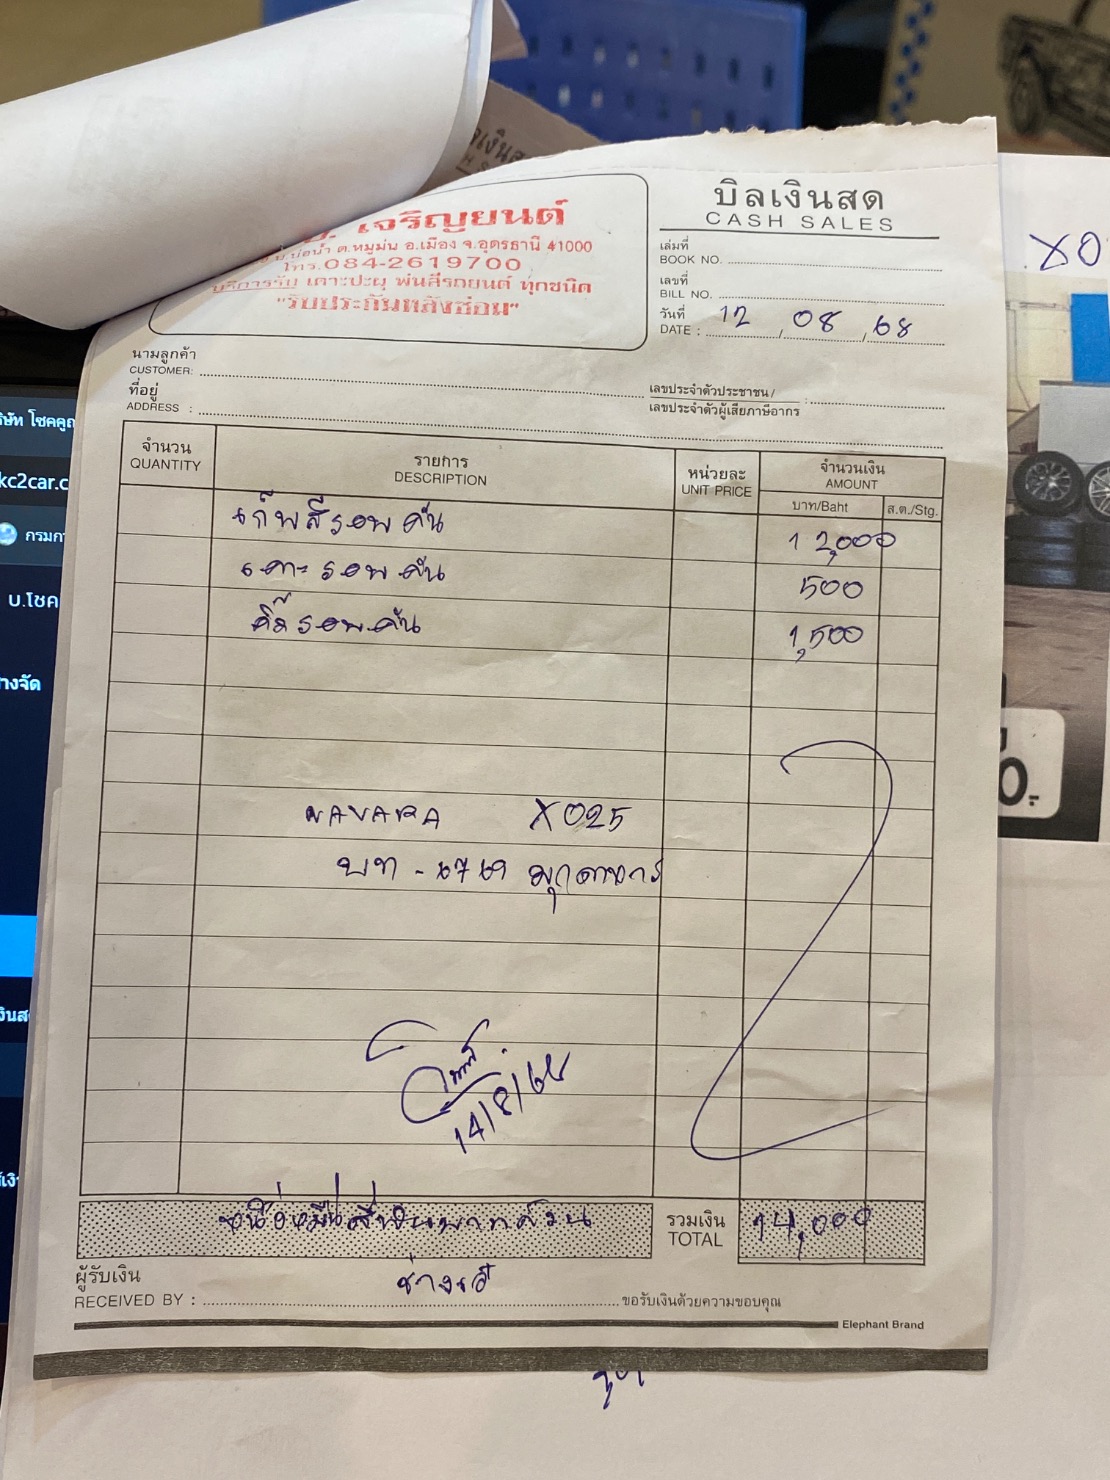 บิลเงินสด
CASH SALES
เจริญยนต์
ต.หมูม่น อ.เมือง จ.อุดรธานี 41000
โทร.084-2619700
บริการรับ เคาะปะผุ พ่นสีรถยนต์ ทุกชนิด
"รับประกันหลังซ่อม"
เล่มที่
BOOK NO.
เลขที่
BILL NO.
วันที่
DATE : 12 , 08 , 68
นามลูกค้า
CUSTOMER:
ที่อยู่
ADDRESS :
เลขประจำตัวประชาชน/
เลขประจำตัวผู้เสียภาษีอากร
จำนวน รายการ หน่วยละ จำนวนเงิน
QUANTITY DESCRIPTION UNIT PRICE AMOUNT
บาท/Baht ส.ต./Stg.
เก็บสีรอบคัน 12,000
เคาะรอบคัน 500
รอบคัน 1,500
NAVARA X025
บท - มุกดาหาร
14/8/68
หนึ่งหมื่นสี่พันบาทถ้วน รวมเงิน 14,000
TOTAL
ผู้รับเงิน
RECEIVED BY : ช่าง ขอรับเงินด้วยความขอบคุณ
Elephant Brand
XO
kc2car.c
บ.โชค